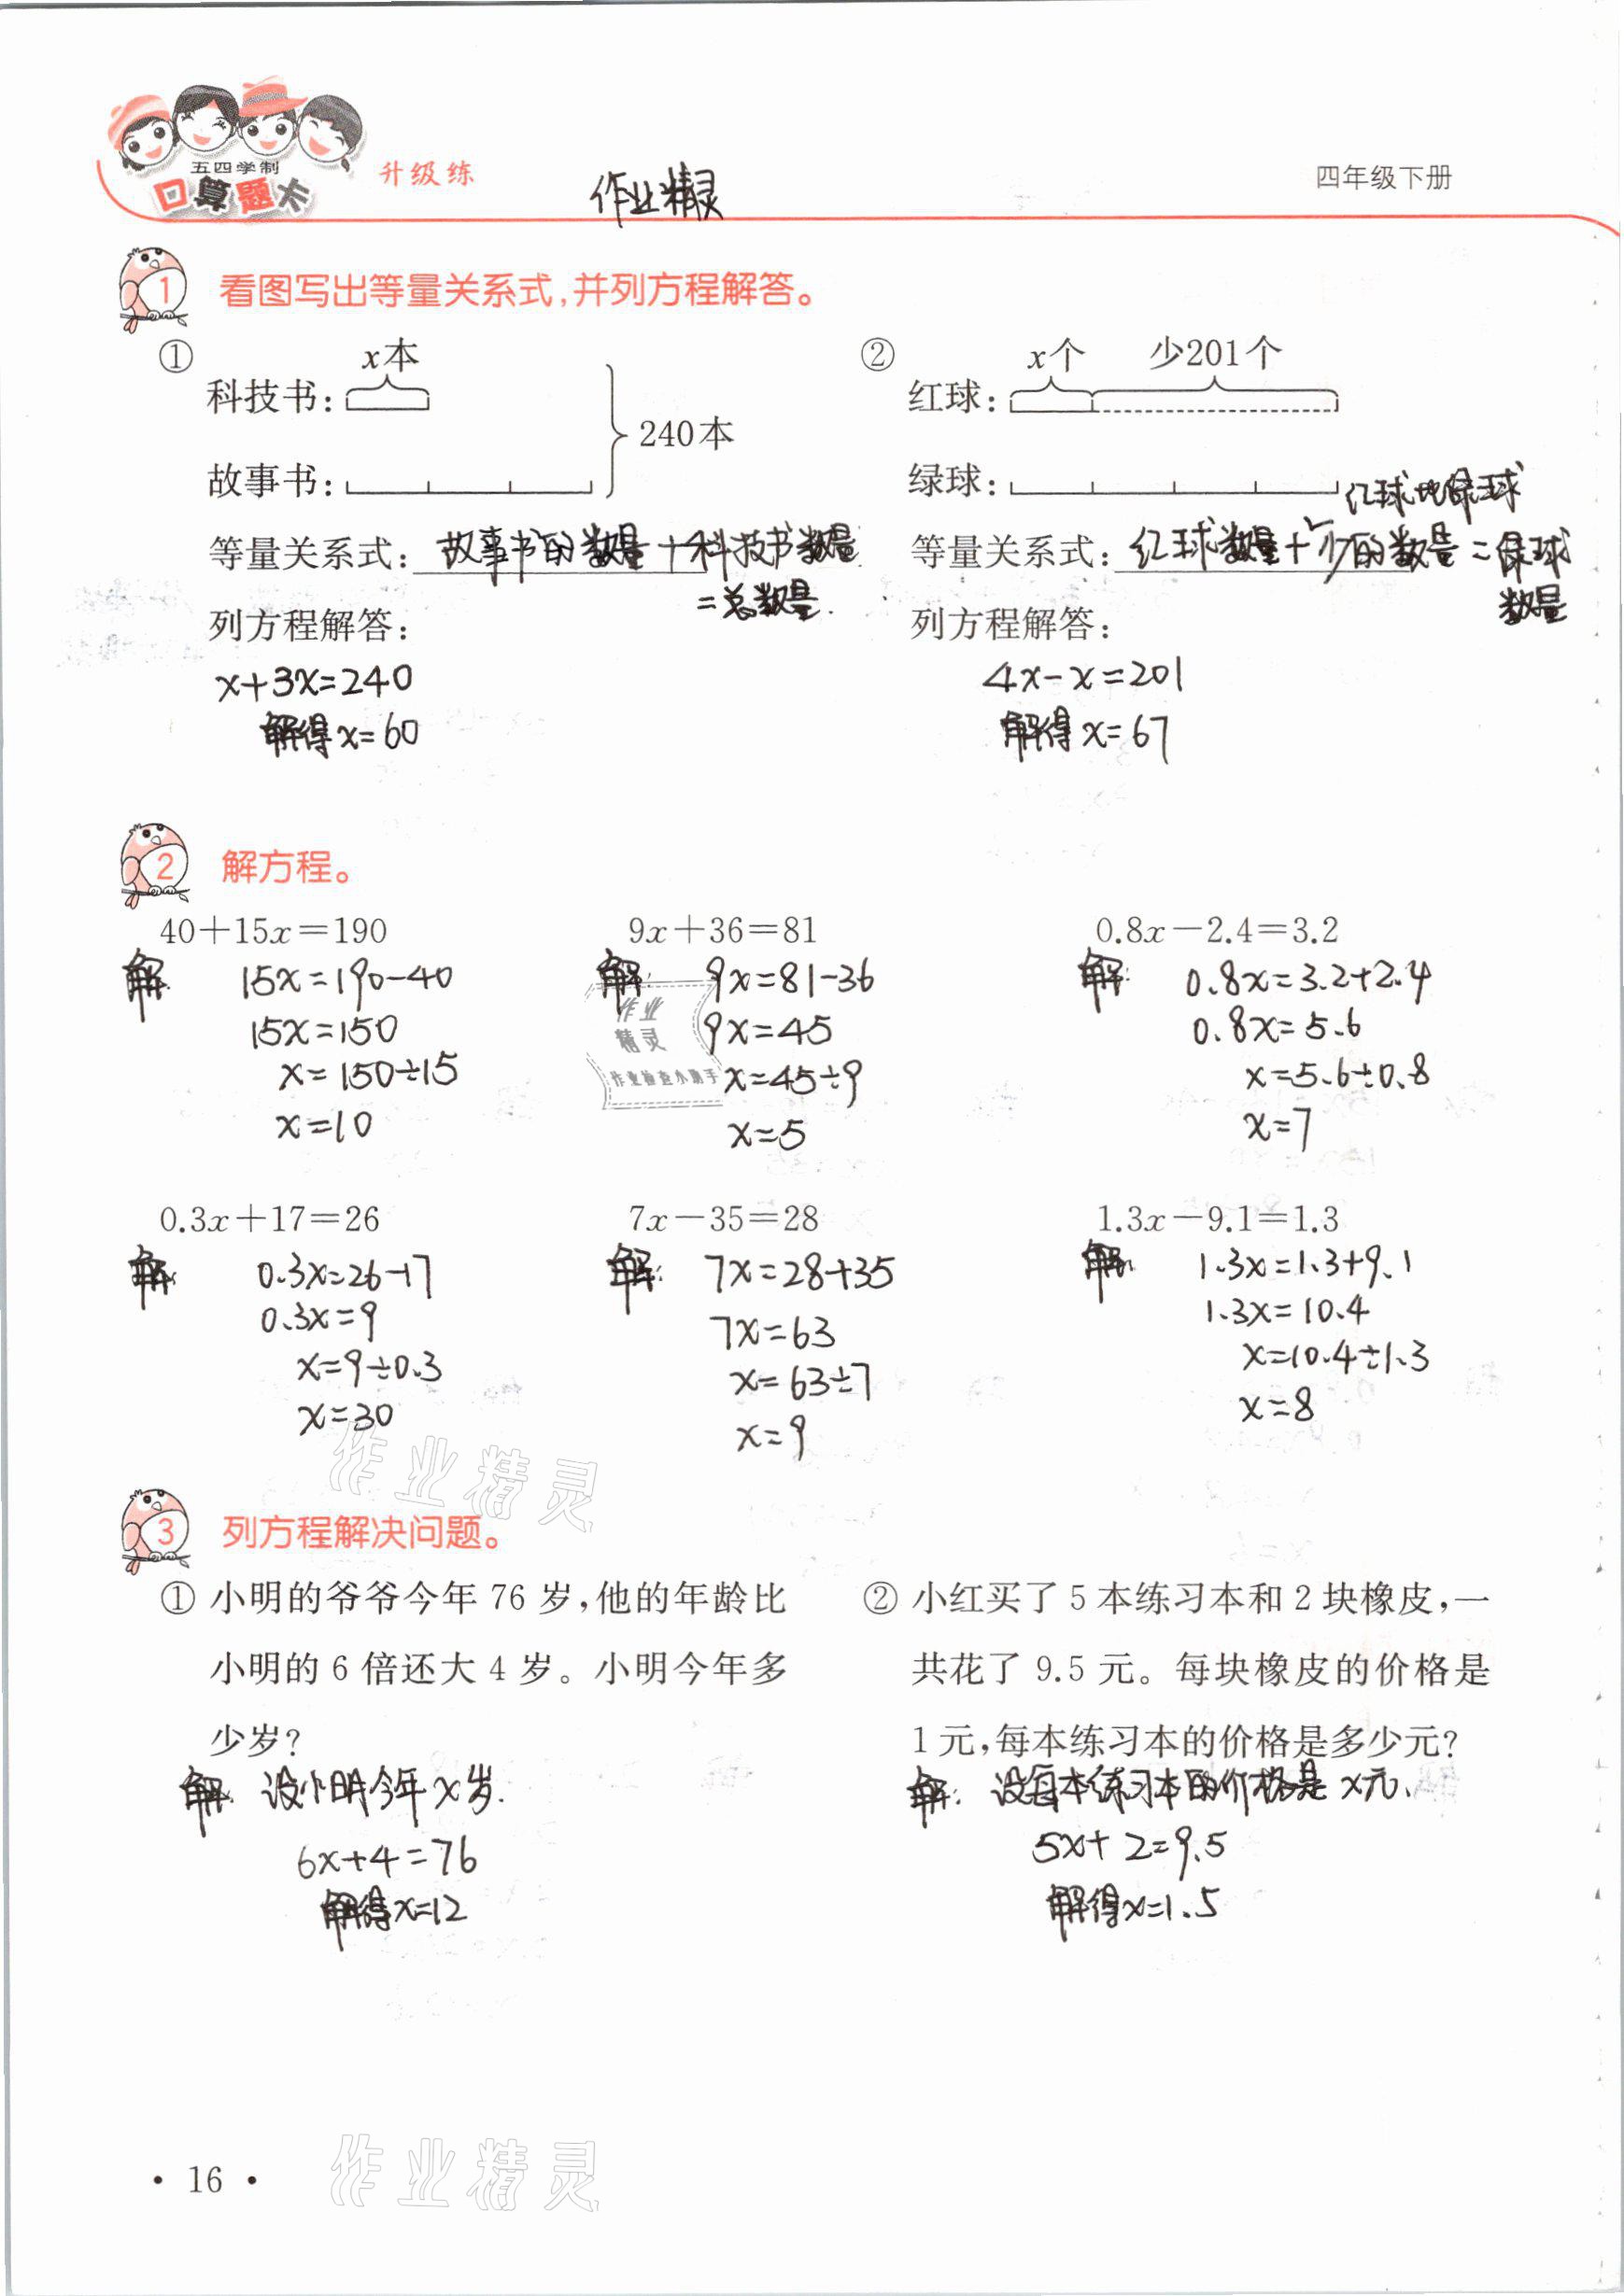 五四学制
口算题卡
升级练
作业精灵
四年级下册
1 看图写出等量关系式,并列方程解答。
①
x本
科技书:
240本
故事书:
等量关系式: 故事书的数量+科技书数量
=总数量.
列方程解答:
x+3x=240
解得x=60
②
x个 少201个
红球:
绿球:
红球比绿球
等量关系式: 红球数量+少的数量=绿球
数量
列方程解答:
4x-x=201
解得x=67
2 解方程。
40+15x=190
解: 15x=190-40
15x=150
x=150÷15
x=10
9x+36=81
解: 9x=81-36
9x=45
x=45÷9
x=5
0.8x-2.4=3.2
解: 0.8x=3.2+2.4
0.8x=5.6
x=5.6÷0.8
x=7
作业
精灵
作业检查小助手
0.3x+17=26
解: 0.3x=26-17
0.3x=9
x=9÷0.3
x=30
7x-35=28
解: 7x=28+35
7x=63
x=63÷7
x=9
1.3x-9.1=1.3
解: 1.3x=1.3+9.1
1.3x=10.4
x=10.4÷1.3
x=8
作业精灵
3 列方程解决问题。
① 小明的爷爷今年 76 岁,他的年龄比
小明的 6 倍还大 4 岁。小明今年多
少岁?
解: 设小明今年x岁.
6x+4=76
解得x=12
② 小红买了 5 本练习本和 2 块橡皮,一
共花了 9.5 元。每块橡皮的价格是
1 元,每本练习本的价格是多少元?
解: 设每本练习本的价格是x元.
5x+2=9.5
解得x=1.5
作业精灵
· 16 ·